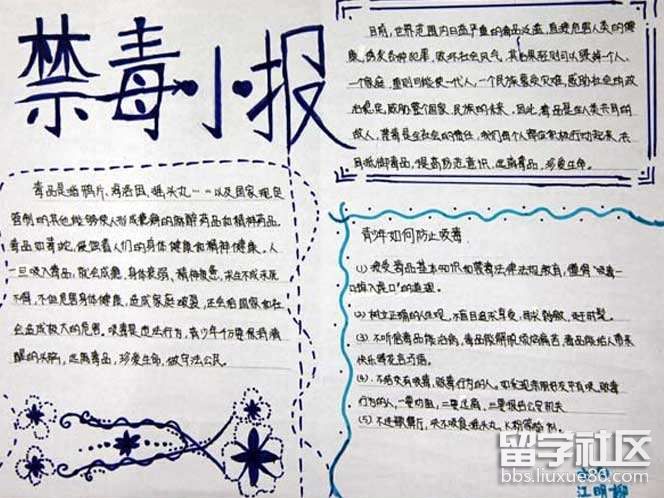 禁毒小报
目前,世界范围内日益严重的毒品泛滥,直接危害人类的健
康,诱发各种犯罪,败坏社会风气,其后果轻则可以毁掉一个人、
一个家庭,重则可能使一代人,一个民族蒙受灾难,威胁社会的政
治稳定,威胁整个国家、民族的未来。因此,毒品是全人类共同的
敌人,禁毒是全社会的责任,我们每个人都应积极行动起来,共
同抵御毒品,提高防范意识,远离毒品,珍爱生命。
毒品是指鸦片、海洛因、摇头丸……以及国家规定
管制的其他能够使人形成瘾癖的麻醉药品和精神药品。
毒品如毒蛇,人们的身体健康和精神健康。人
一旦吸入毒品,就会成瘾,身体衰弱,精神疲惫,求生不成求死
不得,不但危害身体健康,造成家庭破裂,还会给国家和社
会造成极大的危害。吸毒是违法行为,青少年千万要保持清
醒的头脑,远离毒品,珍爱生命,做守法公民。
青少年如何防止吸毒
(1)接受毒品基本知识和禁毒法律法规教育,懂得“吸毒一
口,掉入虎口”的道理。
(2)树立正确的人生观,不盲目追求享受,寻求刺激,赶时髦。
(3)不听信毒品能治病,毒品能解脱烦恼痛苦,毒品能给人带来
快乐等花言巧语。
(4)不结交有吸毒,贩毒行为的人。如发现亲朋好友中有吸、贩毒
行为的人,一要劝阻,二要远离,三要报告公安机关
(5)不进歌舞厅,决不吸食摇头丸、K粉等
江明
留学社区
bbs.liuxue86.com